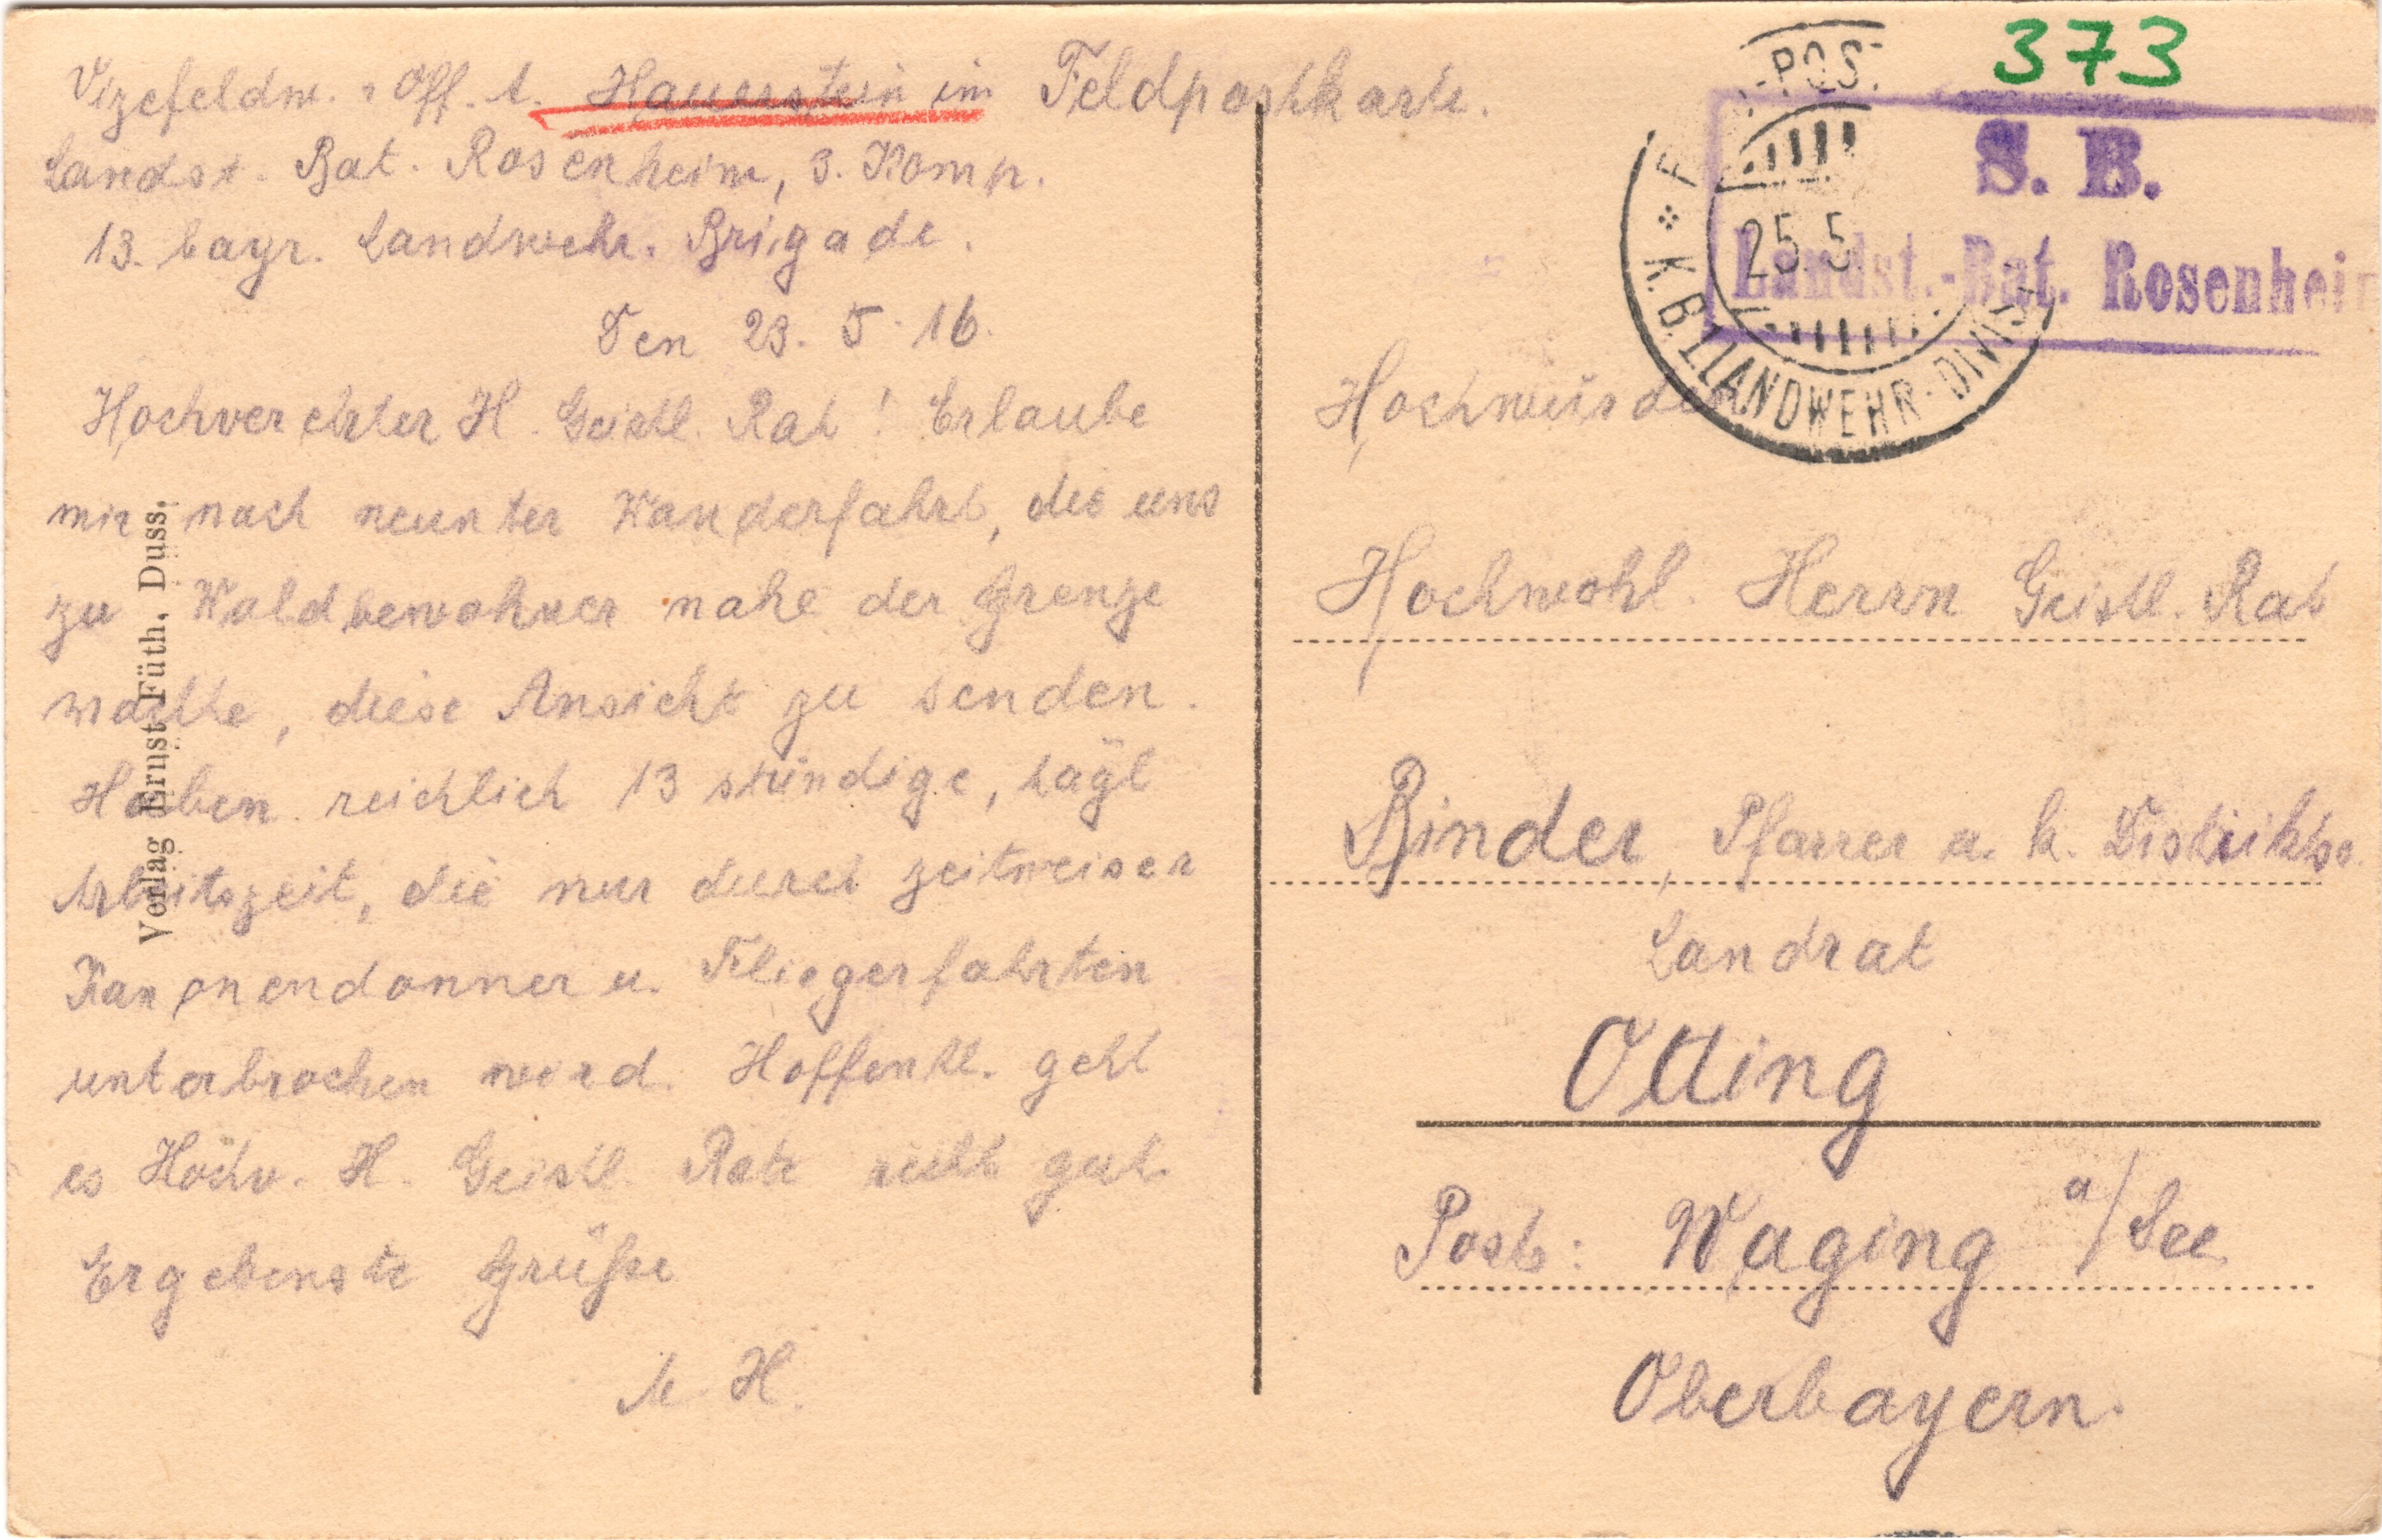 Vizefeldw. u. Off. A. Hauerstein im Feldpostkarte.
Landst. Bat. Rosenheim, 3. Komp.
13. bayr. Landwehr. Brigade.
Den 23. 5. 16.
Hochverehrter H. Geistl. Rat! Erlaube
mir nach neunter Wanderfahrt, die uns
zu Waldbewohner nahe der Grenze
machte, diese Ansicht zu senden.
Haben reichlich 13 stündige, tägl
Arbeitszeit, die nur durch zeitweisen
Kanonendonner u. Fliegerfahrten
unterbrochen wird. Hoffentl. geht
es Hochv. H. Geistl. Rate recht gut.
Ergebenste Grüße
A. H.
Verlag Ernst Füth, Duss.
373
S. B.
Landst.-Bat. Rosenheim
25. 5.
K. B. I. LANDWEHR-DIVIS.
Hochwürden
Hochwohl. Herrn Geistl. Rat
Binder, Pfarrer u. k. Distrikts.
Landrat
Otting
Post: Waging a/See
Oberbayern.